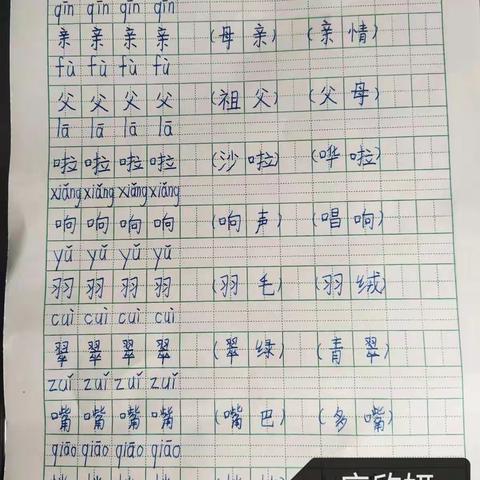 qīn qīn qīn qīn
亲 亲 亲 亲 (母亲) (亲情)
fù fù fù fù
父 父 父 父 (祖父) (父母)
lā lā lā lā
啦 啦 啦 啦 (沙啦) (哗啦)
xiǎng xiǎng xiǎng xiǎng
响 响 响 响 (响声) (唱响)
yǔ yǔ yǔ yǔ
羽 羽 羽 羽 (羽毛) (羽绒)
cuì cuì cuì cuì
翠 翠 翠 翠 (翠绿) (青翠)
zuǐ zuǐ zuǐ zuǐ
嘴 嘴 嘴 嘴 (嘴巴) (多嘴)
qiāo qiāo qiāo qiāo